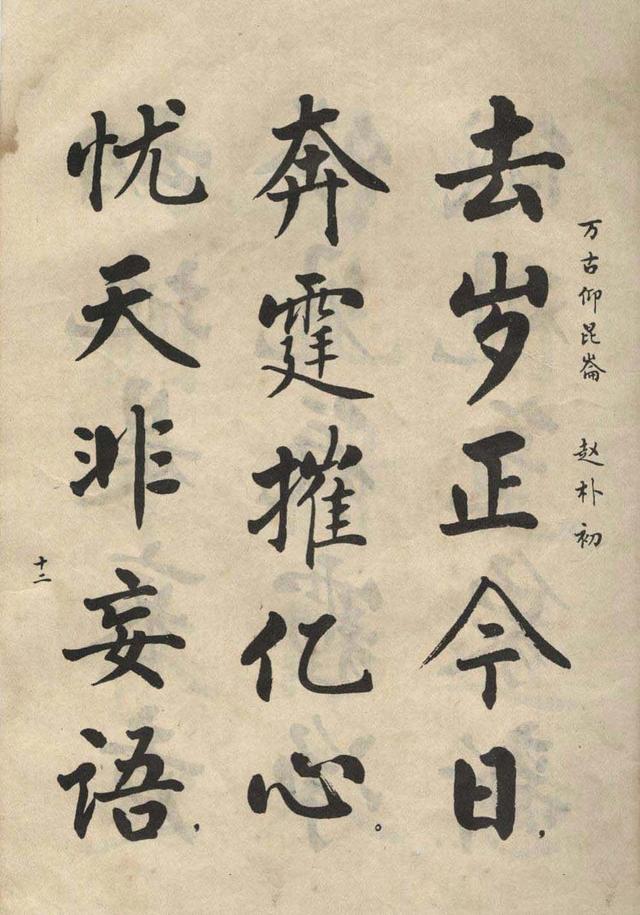 万古仰昆崙 赵朴初
去岁正今日，
奔霆摧亿心。
忧天非妄语，
十二